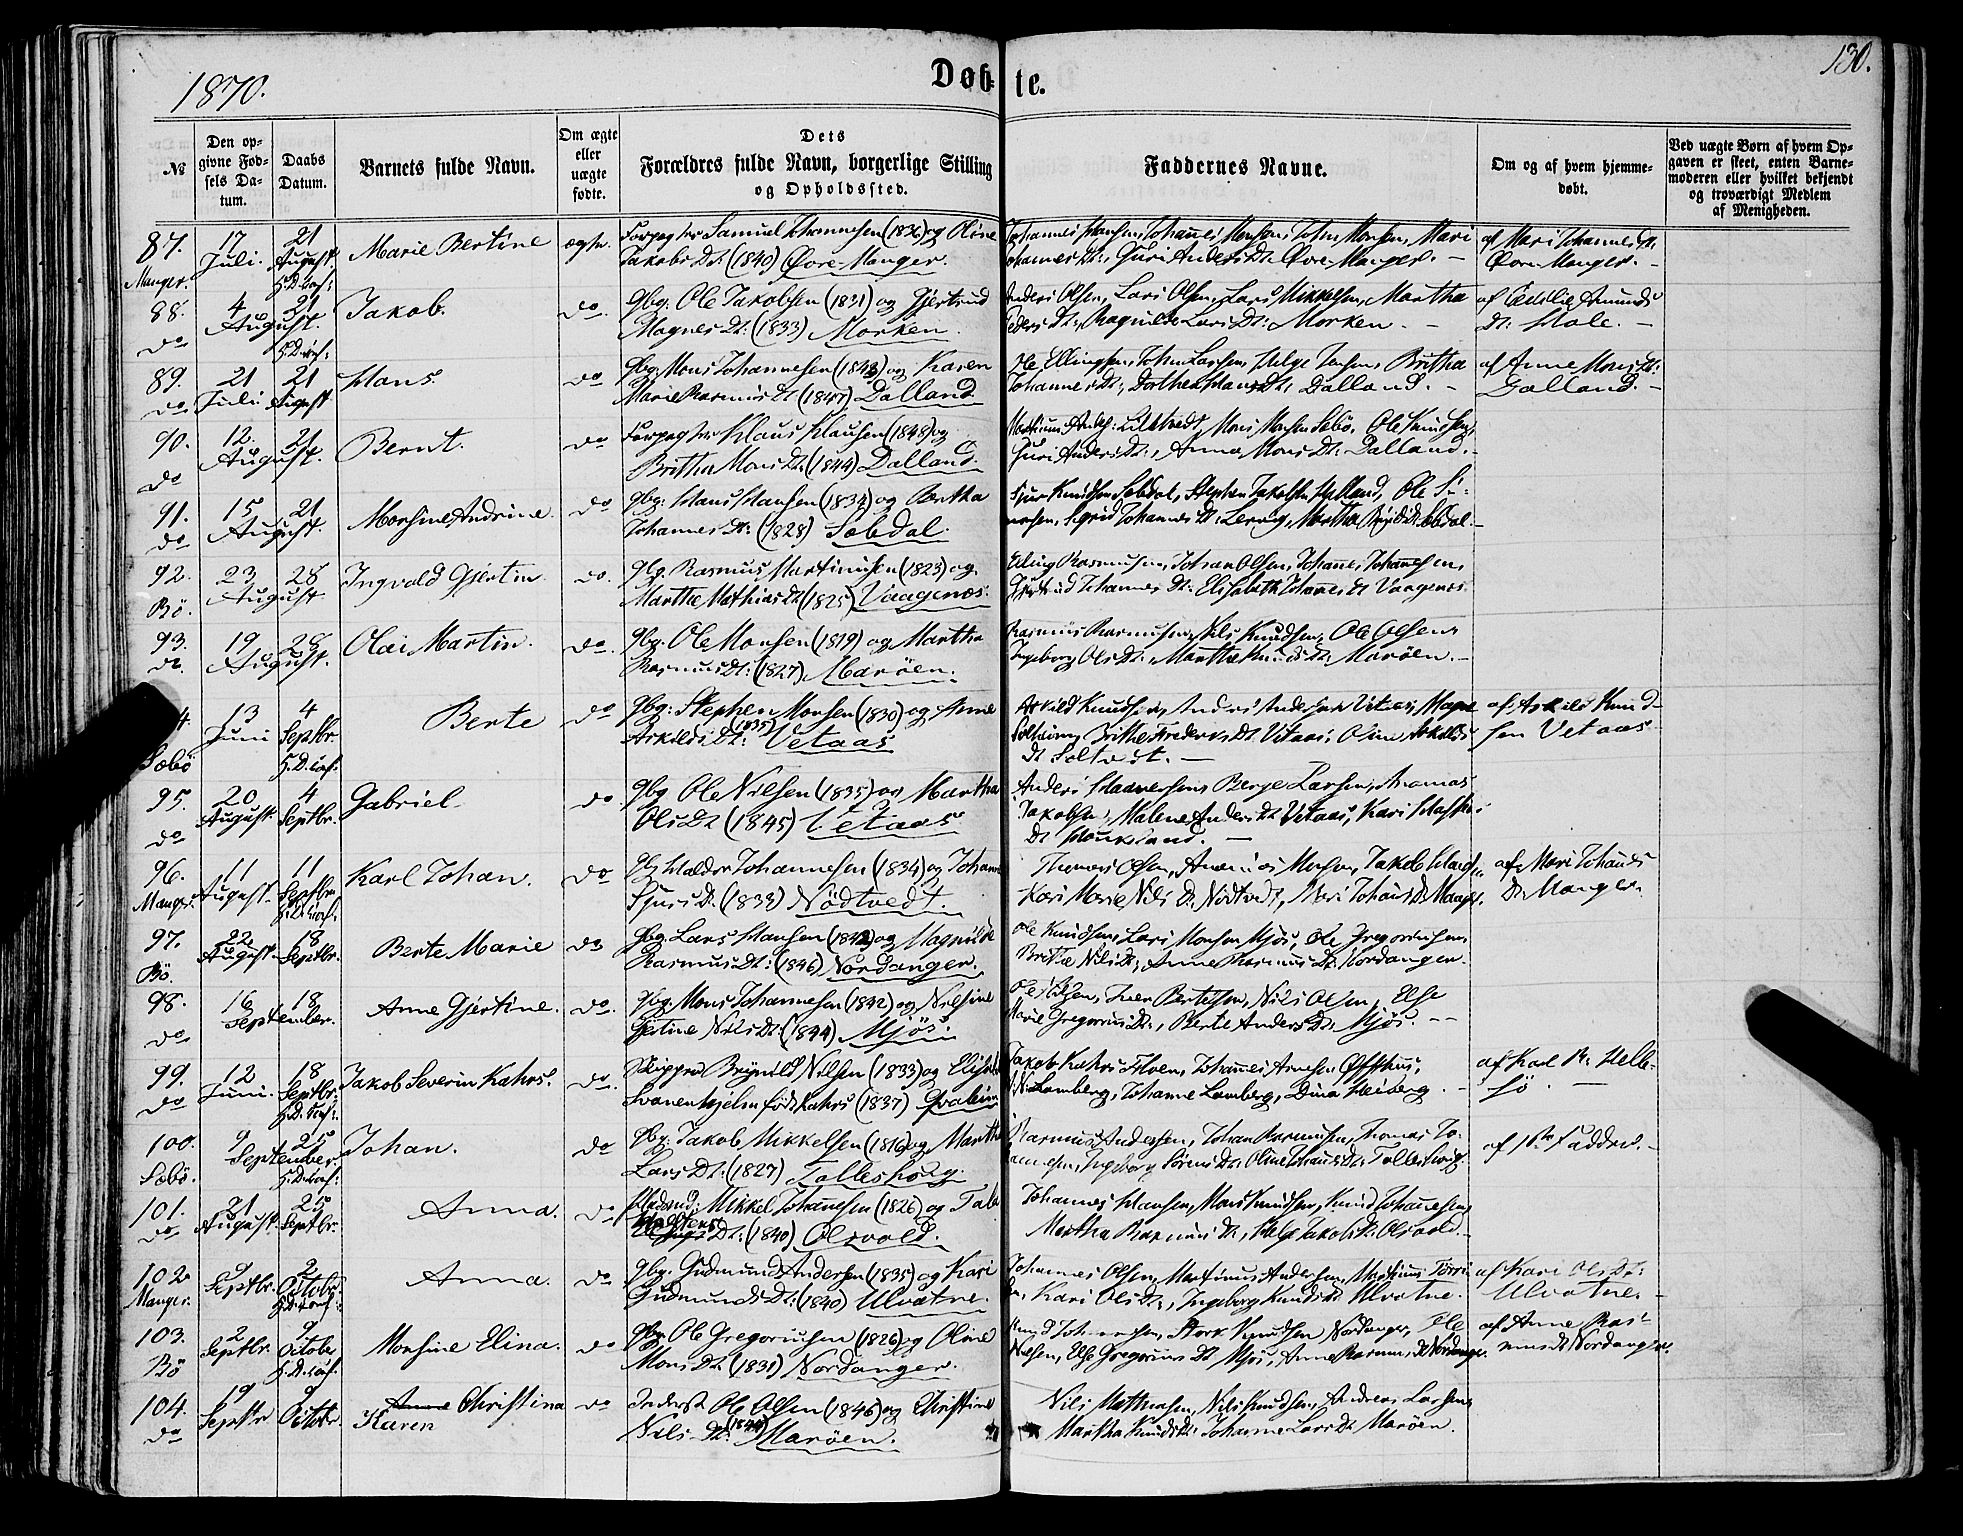 1870.
Døb-
te.
130.
№
Den op-
givne Fød-
sels Da-
tum.
Daabs
Datum.
Barnets fulde Navn.
Om ægte
eller
uægte
fødte.
Dets
Forældres fulde Navn, borgerlige Stilling
og Opholdssted.
Faddernes Navne.
Om og af hvem hjemme-
døbt.
Ved uægte Børn af hvem Op-
gaven er skeet, enten Barne-
moderen eller hvilket bekjendt
og troværdigt Medlem
af Menigheden.
87. 17 21 Marie Bertine ægte. Forpagter Samuel Johannesen (1836) og Oline Johannes Hansen, Johannes Monsen, John Monsen, Mari af Mari Johannes Dt.
Manger. Juli. August Jakobs Dt. (1840) Øvre-Manger. Johannes Dt., Guri Anders Dt. Øvre-Manger. Øvre-Manger.
88. 4 21 Jakob. do. Gbg. Ole Jakobsen (1831) og Gjertrud Anders Olsen, Lars Olsen, Lars Mikkelsen, Martha af Amunds
do August. Magnes Dt: (1833) Morken. Peders Dt., Ragnilde Lars Dt: Morken. Dt: Hole.
89. 21 21 Hans. do Gbg. Mons Johannesen (1843) og Karen Ole Ellingsen, John Larsen, Helge Jensen, Britha af Anne Mons Dt:
do Juli August Marie Rasmus Dt (1847) Dalland Johannes Dt., Dorthea Hans Dt: Dalland. Dalland.
90. 12. 21 Bernt. do Forpagter Klaus Klausen (1848) og Mons Monsen Sebö, Ole Knudsen,
do August. Britha Mons Dt: (1844) Dalland. Guri Anders Dt., Anna Mons Dt: Dalland.
91. 15 21 Monsine Andrine. do Gbg: Hans Hansen (1834) og Bertha Sjur Knudsen Sebdal, Stephen Jakobsen Helland, Ole Si-
do August. Johannes Dt: (1828) Sebdal. monsen, Sigrid Johannes Dt: Lervig, Martha Dt Sebdal.
92. 23 28 Ingvald Gjertin. do. Gbg. Rasmus Martinusen (1823) og Elling Rasmusen, Johan Olsen, Johannes Johannesen,
Bö. August Martha Mathias Dt (1825) Vaagenes. Gjertrud Johannes Dt: Elisabeth Johannes Dt Vaagenes.
93. 19 28 Olai Martin. do. Gbg. Ole Monsen (1819) og Martha Rasmus Rasmusen, Nils Knudsen, Ole Olsen,
do. August. Rasmus Dt: (1827) Maröen. Ingeborg Ols Dt., Martha Knuds Dt: Maröen.
4 13 4 Berte do Gbg: Stephen Monsen (1830) og Anne Askild Knudsen, Anders Andersen Vetaas, Magne af Askild Knud-
Sæbö Juni Septbr Askilds Dt: (1835) Vetaas Brithe Frederiks Dt. Vetaas, Oline Askilds sen Vetaas.
Dt Soltvedt.
95. 20 4 Gabriel. do Gbg Ole Nilsen (1835) og Martha Anders Berge Larsen, Thomas
do August Septbr. Ols Dt (1845) Vetaas Jakobsen, Malene Anders Dt Vetaas, Kari
Dt Houkeland.
96. 11 11 Karl Johan. do Gbg Haldor Johannesen (1834) og Johanne Thomas Olsen, Monsen, Jakob af Mari Johannes
Manger. August. Septbr. Sjurs Dt. (1833) Nödtvedt. Kari Marie Nils Dt. Nödtvedt, Mari Johannes Dt. Manger. Dt: Manger.
97. 22 18 Berte Marie do Gbg. Lars Hansen (1842) og Magnilde Ole Knudsen, Lars Monsen Mjös, Ole Gregoriusen,
Bö. August. Septbr. Rasmus Dt: (1846) Nordanger. Brithe Nils Dt., Anne Rasmus Dt: Nordanger.
98. 16 18 Anne Gjertine. do. Gbg. Mons Johannesen (1842) og Nilsine Ole Iver Bertelsen, Nils Olsen, Else
do September. Gjertine Nils Dt: (1844) Mjös. Marie Gregorius Dt., Berte Anders Dt: Mjös.
99. 12 18 Jakob Severin Kahrs. do. Skipper Brynild Nilsen (1833) og Jakob Kahrs Johannes Arnesen af Karl R. Helle-
do Juni. Septbr. Svanenhjelm född Kahrs (1837) Lamberg, Johanne Lamberg, Dina Heiberg. sö.
100. 9 25 Johan. do Gbg. Jakob Mikkelsen (1816) og Martha Rasmus Andersen, Johan Rasmusen, Thomas Jo- af 1ste Fadder.
Sæbö. September. Lars Dt: (1827) Tolleshoug. hannesen, Ingeborg Sörens Dt: Oline Johannes Dt: Tolleshoug.
101. 21 25 Anna. do Mikkel Johannesen (1826) og Johannes Hansen, Mons Knudsen, Knud Johannesen,
do August. Septbr. Dt: (1840) Olsvold. Martha Rasmus Dt, Helge Jakobs Dt: Olsvold.
102. 9 2 Anna. do Gbg. Gudmund Andersen (1835) og Kari Johannes Olsen, Martinus Andersen, af Kari Ols Dt:
Manger. Septbr. October Gudmunds Dt: (1840) Ulvatne. Kari Ols Dt., Ingeborg Knuds Dt Ulvatne. Ulvatne.
103. 2 9 Monsine Elina. do Gbr. Ole Gregoriusen (1826) og Oline Knud Johannesen, Störk Knudsen Nordanger, Ole af Anne Ras-
Bö Septbr. October Mons Dt. (1831) Nordanger. Nilsen, Else Gregorius Dt Mjös, Anne Rasmus Dt Nordanger. mus Dt Nordanger.
104. 19 9 Anne Christina do Inderst Ole Olsen (1846) og Christine Nils Mathiasen, Nils Knudsen, Andreas Larsen,
do Septbr Octobr Karen Nils Dt: (1844) Maröen. Martha Knuds Dt: Johanne Lars Dt Maröen.